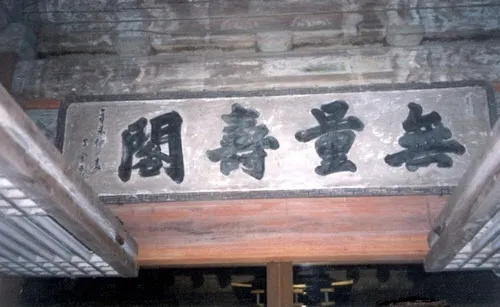 無量壽閣